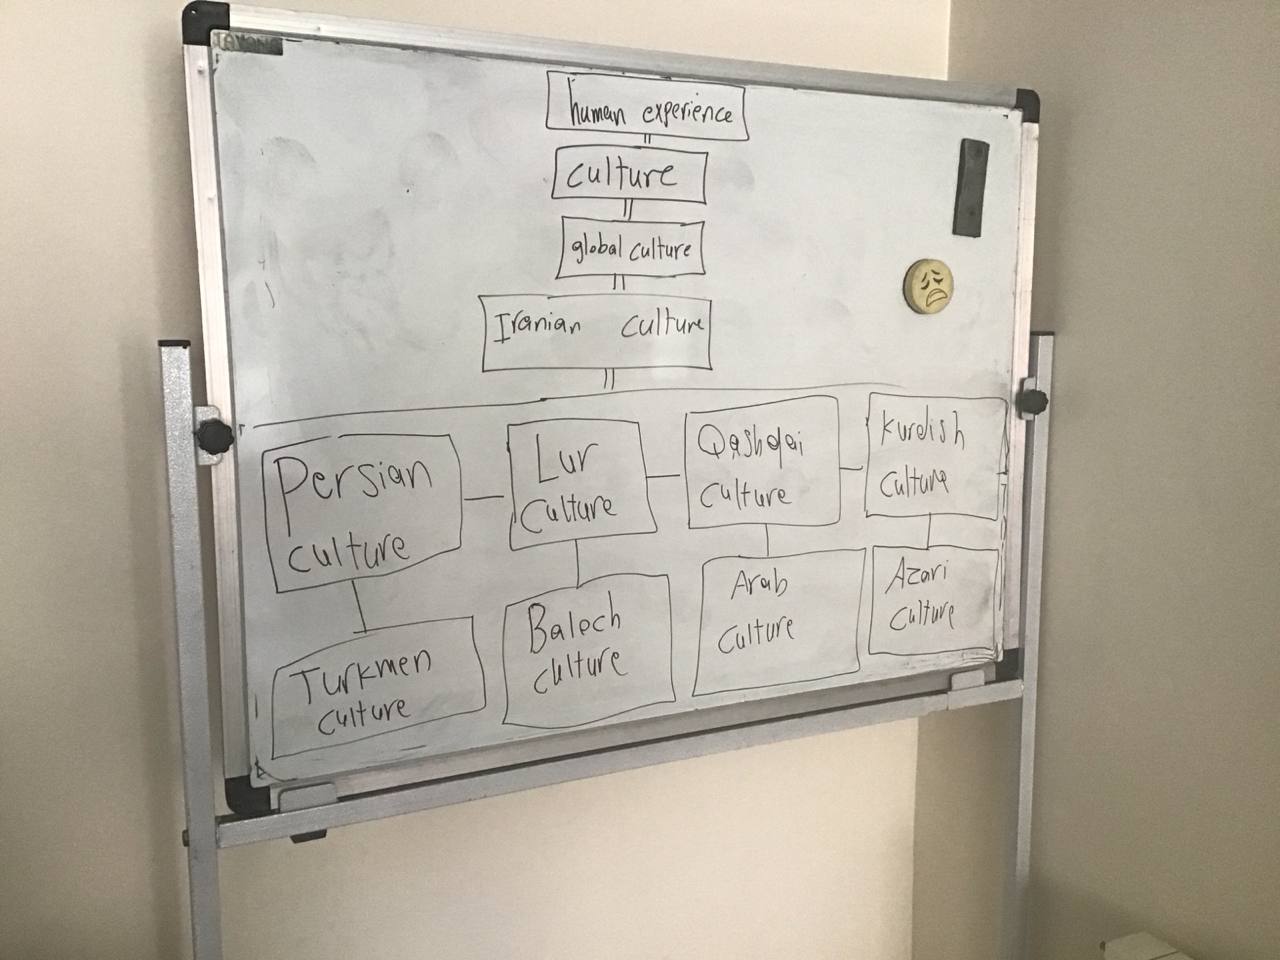 human experience
culture
global culture
Iranian culture
Persian
culture
Lur
Culture
Qashqai
culture
Kurdish
culture
Turkmen
culture
Baloch
culture
Arab
culture
Azari
culture